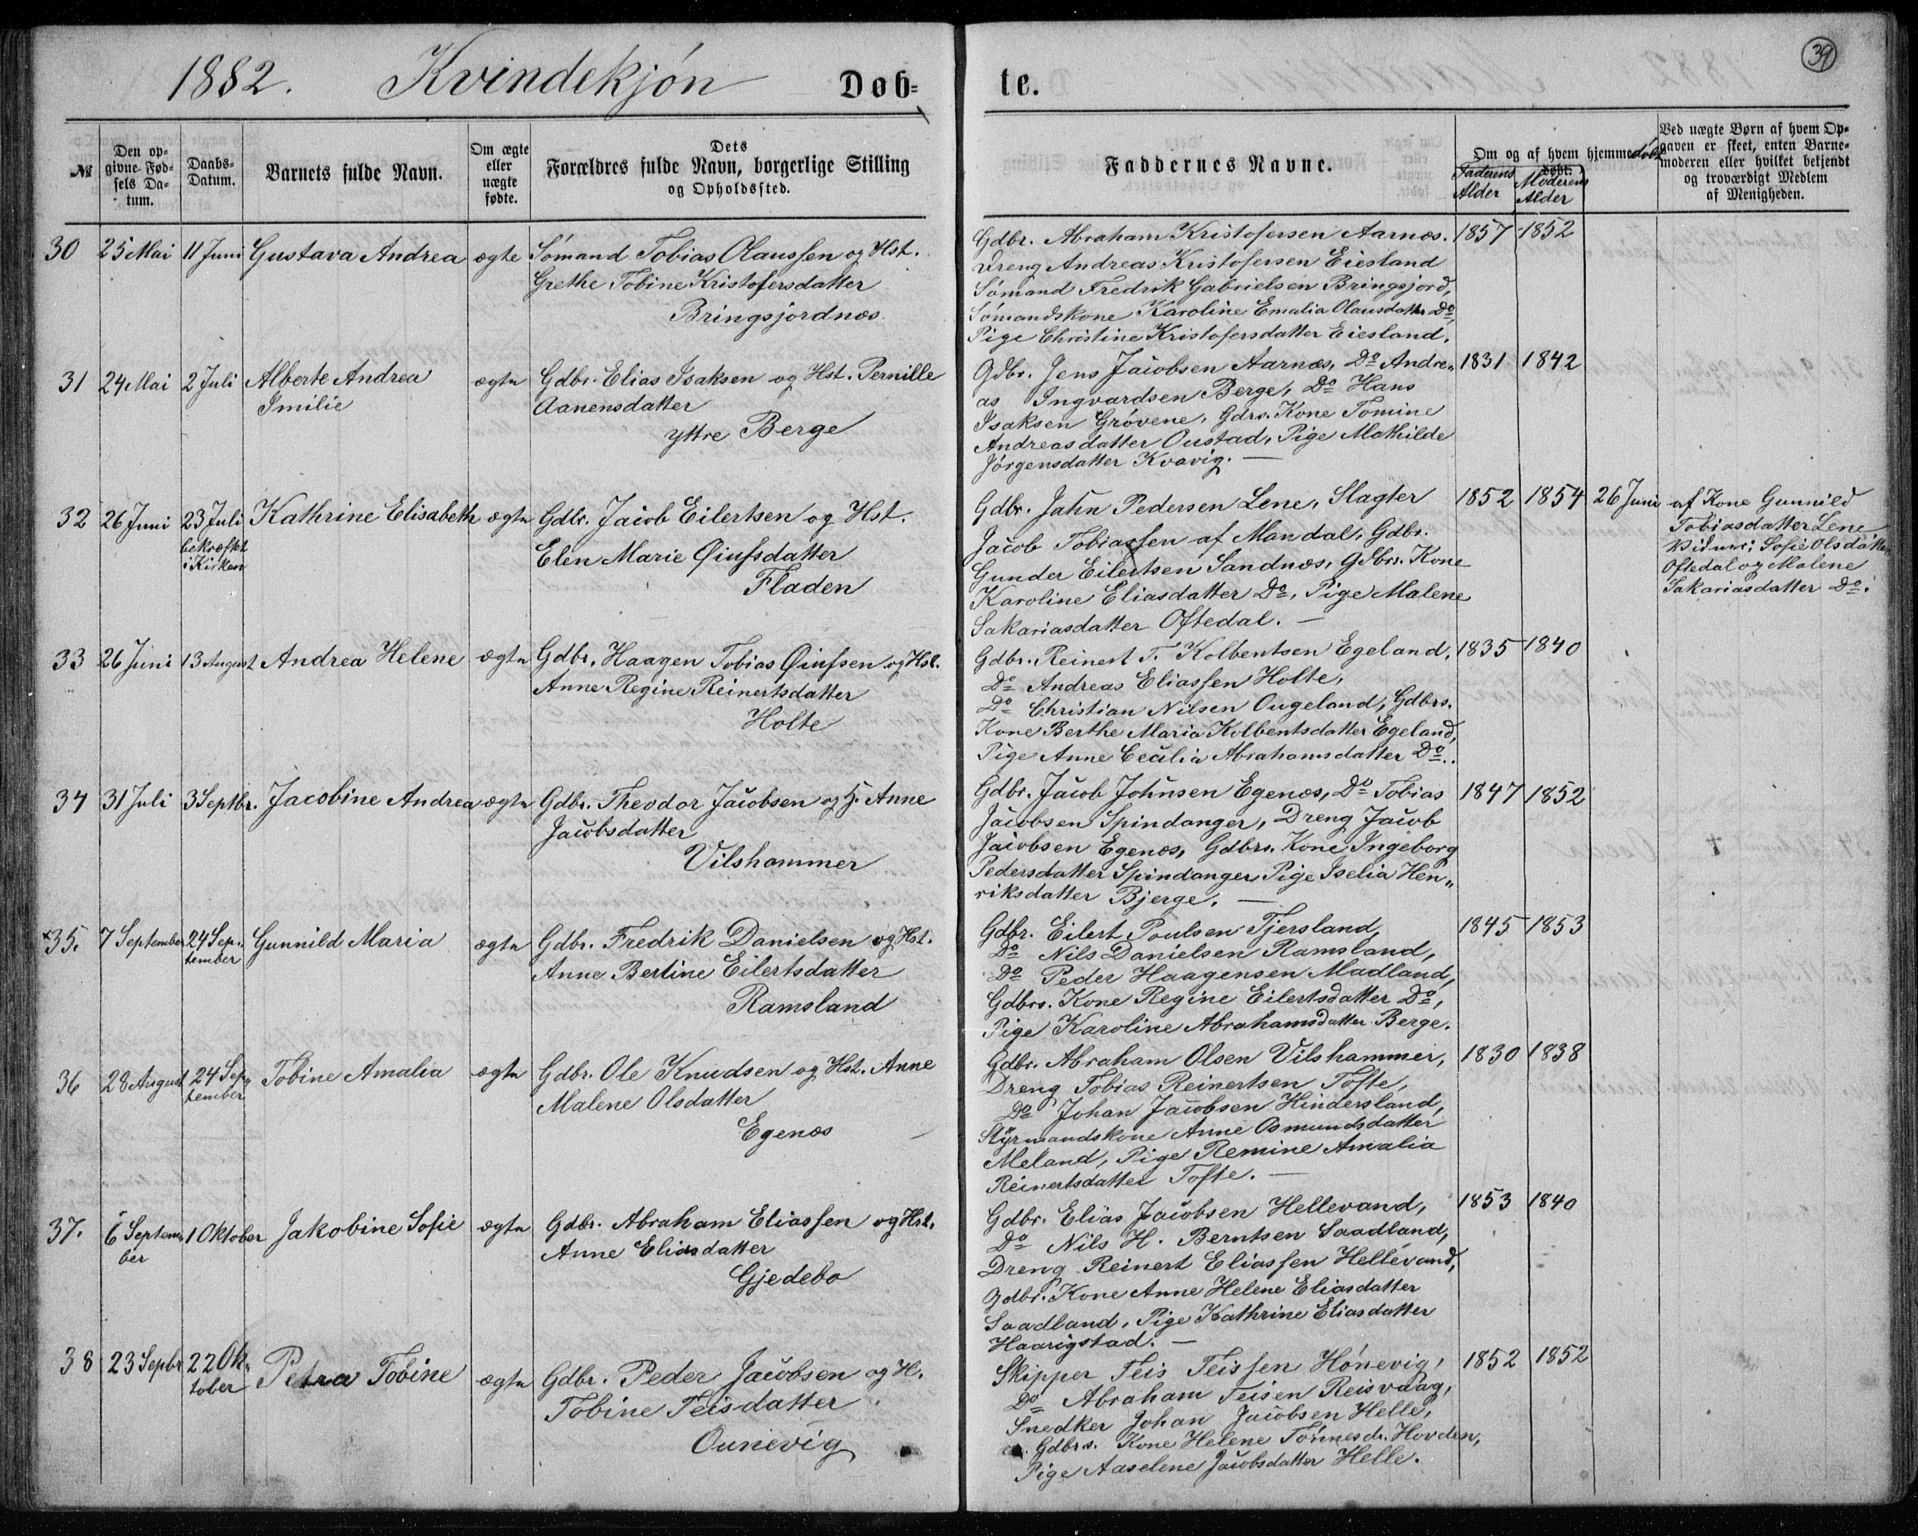 1882. Kvindekjøn Døb-
te.
39
№
Den op-
givne Fød-
sels Da-
tum.
Daabs-
Datum.
Barnets fulde Navn.
Om ægte
eller
uægte
fødte.
Dets
Forældres fulde Navn, borgerlige Stilling
og Opholdssted.
Faddernes Navne.
Om og af hvem hjemmedøbt
døbt.
Faderens
Alder
Moderens
Alder
Ved uægte Børn af hvem Op-
gaven er skeet, enten Barne-
moderen eller hvilket bekjendt
og troværdigt Medlem
af Menigheden.
30 25 Mai 11 Juni Gustava Andrea ægte Sømand Tobias Olaussen og Hst.
Grethe Tobine Kristofersdatter
Bringsjordnæs
Gdbr. Abraham Kristofersen Aarnæs. 1857 1852
Dreng Andreas Kristofersen Eiesland
Sømand Fredrik Gabrielsen Bringsjord,
Sømandskone Karoline Emalia Olausdatter Do,
Pige Christine Kristofersdatter Eiesland.
31 24 Mai 2 Juli Alberte Andrea
Imilie
ægte Gdbr. Elias Isaksen og Hst. Pernille
Aanensdatter
yttre Berge
Gdbr. Jens Jacobsen Aarnæs, Do Andre- 1831 1842
as Ingvardsen Berge, Do Hans
Isaksen Grövene, Gdrs. Kone Tomine
Andreasdatter Oustad, Pige Mathilde
Jörgensdatter Kvavig. —
32 26 Juni 23 Juli
bekræftet
i Kirken
Kathrine Elisabeth ægte Gdbr. Jacob Eilertsen og Hst.
Elen Marie Øiufsdatter
Fladen
Gdbr. Jahn Pedersen Lene, Slagter 1852 1854 26 Juni
Jacob Tobiassen af Mandal, Gdbr.
Gunder Eilertsen Sandnæs, Gdbrs. Kone
Karoline Eliasdatter Do, Pige Malene
Sakariasdatter Oftedal. —
af Kone Gunnild
Tobiasdatter Lene
Vidner: Sofie Olsdatter
Oftedal og Malene
Sakariasdatter Do.
33 26 Juni 13 August Andrea Helene ægte Gdbr. Haagen Tobias Øiufsen og Hst.
Anne Regine Reinertsdatter
Holte
Gdbr. Reinert T. Kolbentsen Egeland, 1835 1840
Do Andreas Eliassen Holte,
Do Christian Nilsen Ougeland, Gdbrs.
Kone Berthe Maria Kolbentsdatter Egeland,
Pige Anne Cecilia Abrahamsdatter Do.
34 31 Juli 3 Septbr. Jacobine Andrea ægte Gdbr. Theodor Jacobsen og H. Anne
Jacobsdatter
Vilshammer
Gdbr. Jacob Johnsen Egenæs, Do Tobias 1847 1852
Jacobsen Spindanger, Dreng Jacob
Jacobsen Egenæs, Gdbrs. Kone Ingeborg
Pedersdatter Spindanger Pige Iselia Hen-
riksdatter Bjerge. —
35. 7 September 24 Sep-
tember
Gunnild Maria ægte Gdbr. Fredrik Danielsen og Hst.
Anne Bertine Eilertsdatter
Ramsland
Gdbr. Eilert Poulsen Tjersland, 1845 1853
Do Nils Danielsen Ramsland,
Do Peder Haagensen Madland,
Gdbrs. Kone Regine Eilertsdatter Do,
Pige Karoline Abrahamsdatter Berge.
36 28 August 24 Sep-
tember
Tobine Amalia ægte Gdbr. Ole Knudsen og Hst. Anne
Malene Olsdatter
Egenæs
Gdbr. Abraham Olsen Vilshammer, 1830 1838
Dreng Tobias Reinertsen Tofte,
Do Johan Jacobsen Hindersland,
Styrmandskone Anne Osmundsdatter
Meland, Pige Remine Amalia
Reinertsdatter Tofte. —
37. 6 Septem-
ber
1 Oktober Jakobine Sofie ægte Gdbr. Abraham Eliassen og Hst.
Anne Eliasdatter
Gjedebo
Gdbr. Elias Jacobsen Hellevand, 1853 1840
Do Nils H. Berntsen Saadland,
Dreng Reinert Eliassen Hellevand,
Gdbr. Kone Anne Helene Eliasdatter
Saadland, Pige Kathrine Eliasdatter
Haarigstad. —
38 23 Sepbr 22 Ok-
tober
Petra Tobine ægte Gdbr. Peder Jacobsen og H.
Tobine Teisdatter
Ounevig
Skipper Teis Teissen Hönevig, 1852 1852
Do Abraham Teisen Reisvaag,
Snedker Johan Jacobsen Helle,
Gdbrs. Kone Helene Tönnesdr. Hovden,
Pige Aaselene Jacobsdatter Helle.